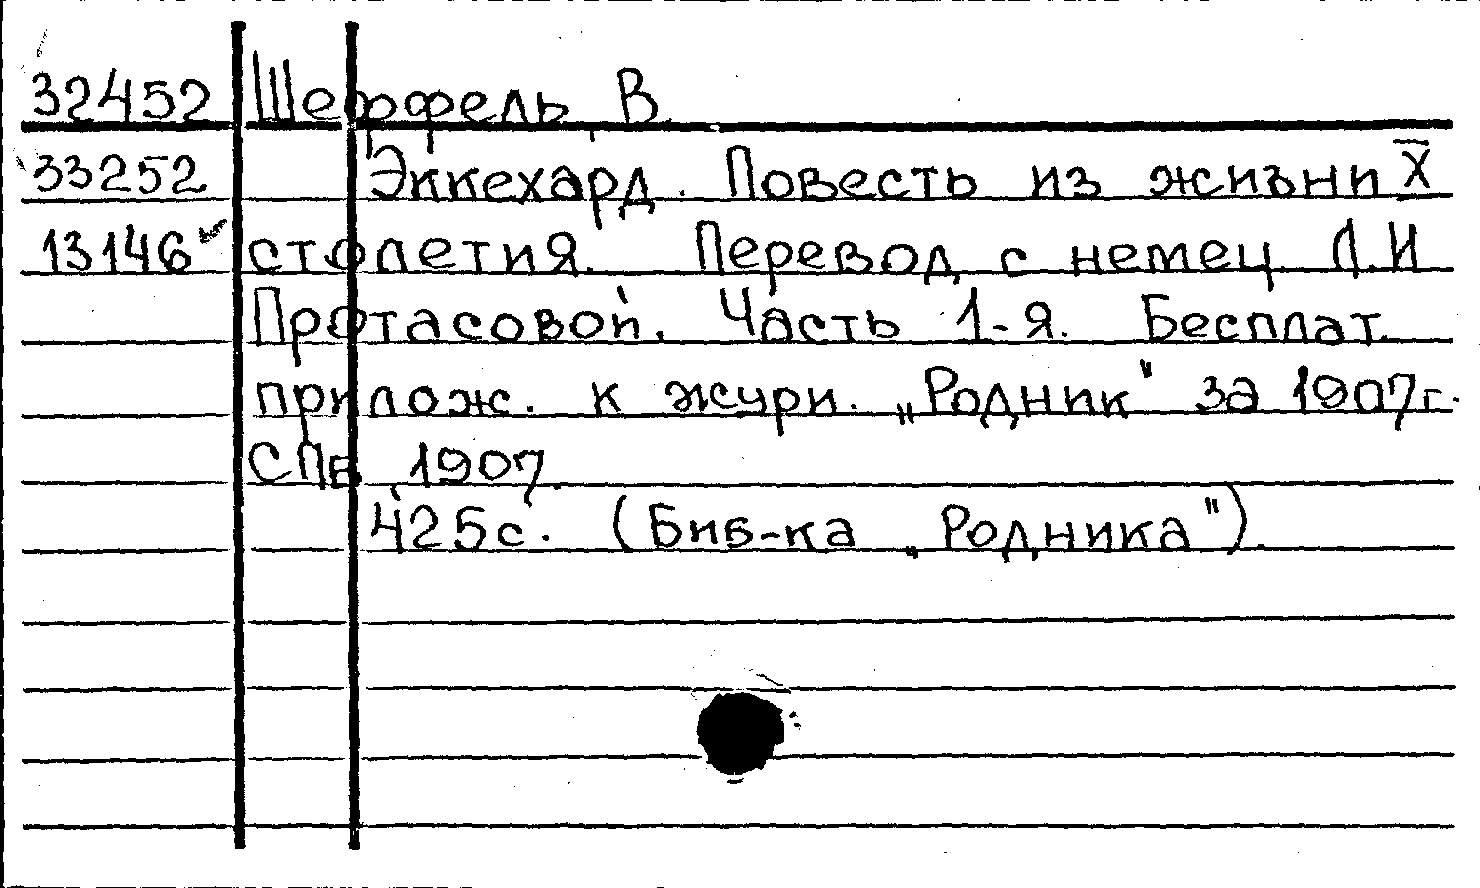 32452 Шеффель, В.
33252 Эккехард. Повесть из жизни X
13146 столетия. Перевод с немец. Л.И.
Протасовой. Часть 1-я. Бесплат.
прилож. к журн. „Родник" за 1907г.
СПБ, 1907.
425с. (Биб-ка „Родника").